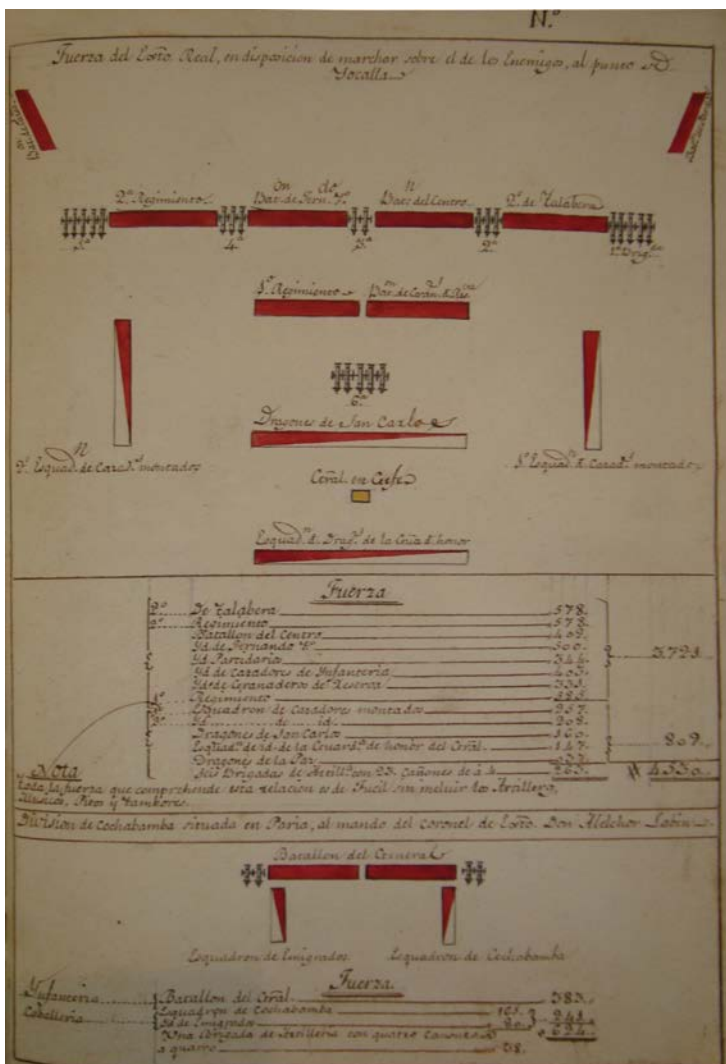 N.º
Fuerza del Exto. Real, en disposicion de marchar sobre el de los Enemigos, al punto D
Yocalla
2º Regimiento
Bat.on de Fern.do 7º
Bat.n del Centro
2º de Talabera
5ª
4ª
3ª
2ª
1ª Brig.
1º Regimiento
6ª
Dragones de San Carlos
2º Esquad.n de Cazad.s montados
1º Esquad.n d. Cazad.s montados
Gral. en Gefe
Esquad.n d. Drag.s de la Gua. d. honor
Fuerza
2º De Talabera 578.
2º Regimiento 578.
Batallon del Centro 409.
Yd. de Fernando 7º 500.
Yd. Partidario 344.
Yd. de Cazadores de Infanteria 403.
Yd. de Granaderos de Reserva
1º Regimiento
3721
Esquadron de Cazadores montados
Yd. de id.
Dragones de San Carlos 160.
Esquad.n de id. de la Guard.a de honor del Gral. 147.
809.
Dragones de la Paz
Seis Brigadas de Artill.a con 23 Cañones de à 4. 263.
4530.
Nota
toda la fuerza que comprehende esta relacion es de Fucil sin incluir los Artilleros,
Musicos, Pitos y tambores.
Division de Cochabamba situada en Paria, al mando del Coronel de Exto. Don Melchor
Batallon del General
Esquadron de Emigrados
Esquadron de Cochabamba
Fuerza
Ynfanteria Batallon del Gral. 383.
Caballeria Esquadron de Cochabamba
Yd. de Emigrados
Una Brigada de Artilleria con quatro Canones
a quatro